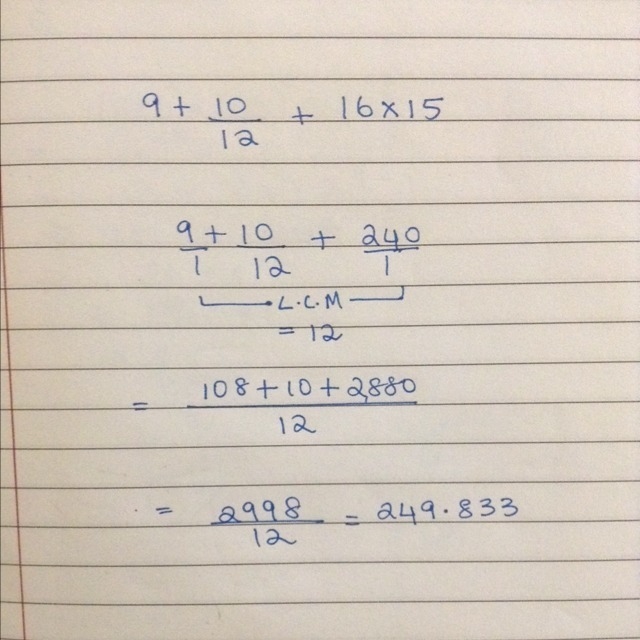 9 + 10/12 + 16×15
9/1 + 10/12 + 240/1
L.C.M
= 12
= 108+10+2880/12
= 2998/12 = 249.833